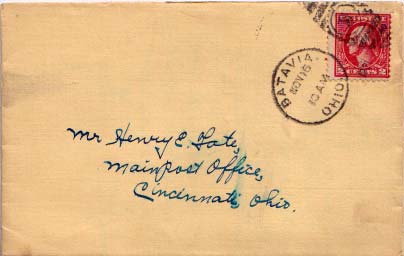 BATAVIA
NOV 16
10 AM
OHIO
2 CENTS 2
Mr Henry E. Tate,
Main Post Office,
Cincinnati, Ohio.